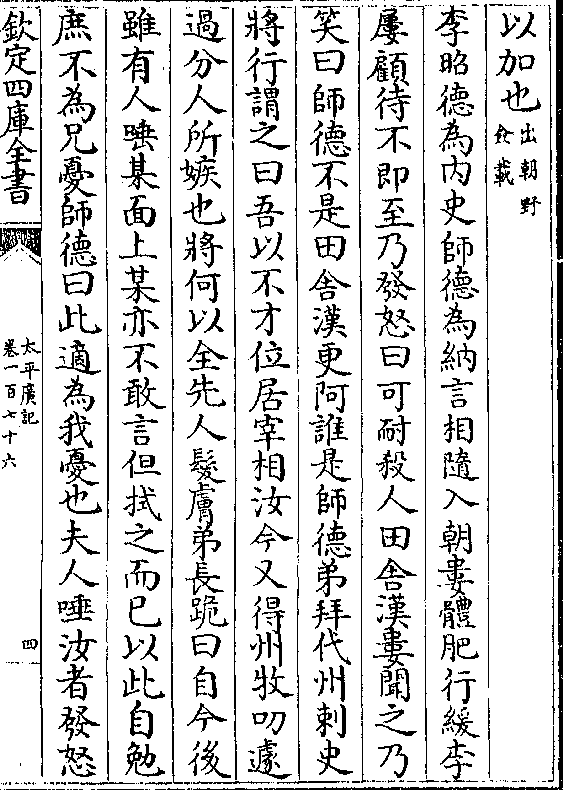 以加也出朝野
僉載
李昭德為内史師德為納言相隨入朝婁體肥行緩李
屢顧待不即至乃發怒曰可耐殺人田舍漢婁聞之乃
笑曰師德不是田舍漢更阿誰是師德弟拜代州刺史
將行謂之曰吾以不才位居宰相汝今又得州牧叨遽
過分人所嫉也將何以全先人髮膚弟長跪曰自今後
雖有人唾某面上某亦不敢言但拭之而已以此自勉
庶不為兄憂師德曰此適為我憂也夫人唾汝者發怒
欽定四庫全書
太平廣記
卷一百七十六
四